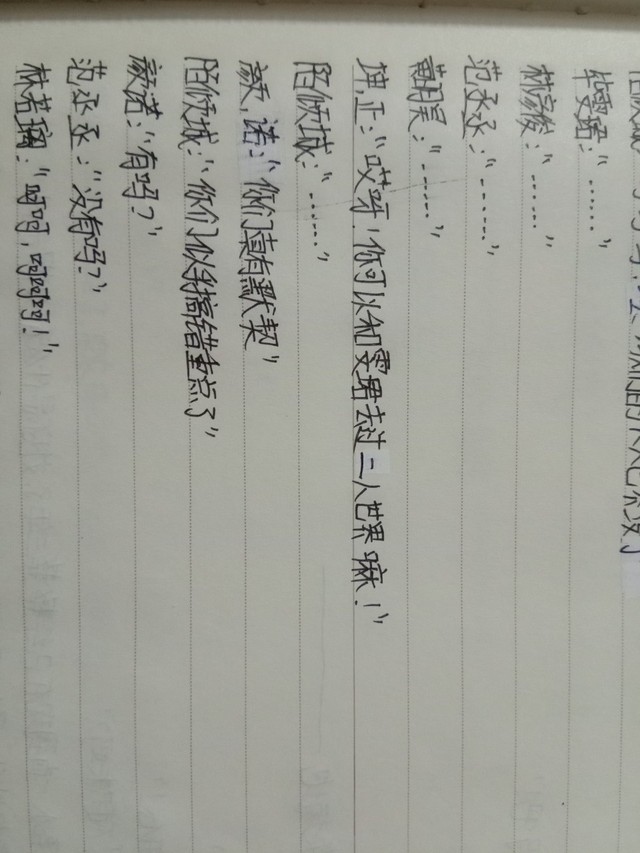 毕雯珺:“……”
林彦俊:“……”
范丞丞:“……”
黄明昊:“……”
坤,正:“哎呀!你可以和雯珺去过二人世界嘛!”
陌倾城:“……”
颜,诺:“你们真有默契”
陌倾城:“你们似乎搞错重点了”
颜诺:“有吗?”
范丞丞:“没有吗?”
林若璃:“呵呵,呵呵呵!”